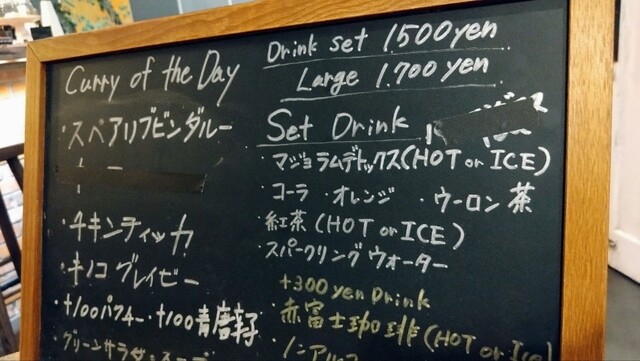 Curry of the Day
・スペアリブビンダルー
・チキンティッカ
・キノコグレイビー
+100パクチー・+100青唐辛子
・グリーンサラダ・スープ
Drink set 1500yen
Large 1,700yen
Set Drink
・マジョラムデトックス(HOT or ICE)
・コーラ ・オレンジ ・ウーロン茶
・紅茶(HOT or ICE)
・スパークリングウォーター
+300 yen Drink
・赤富士珈琲(HOT or Ice)
・ノンアルコ